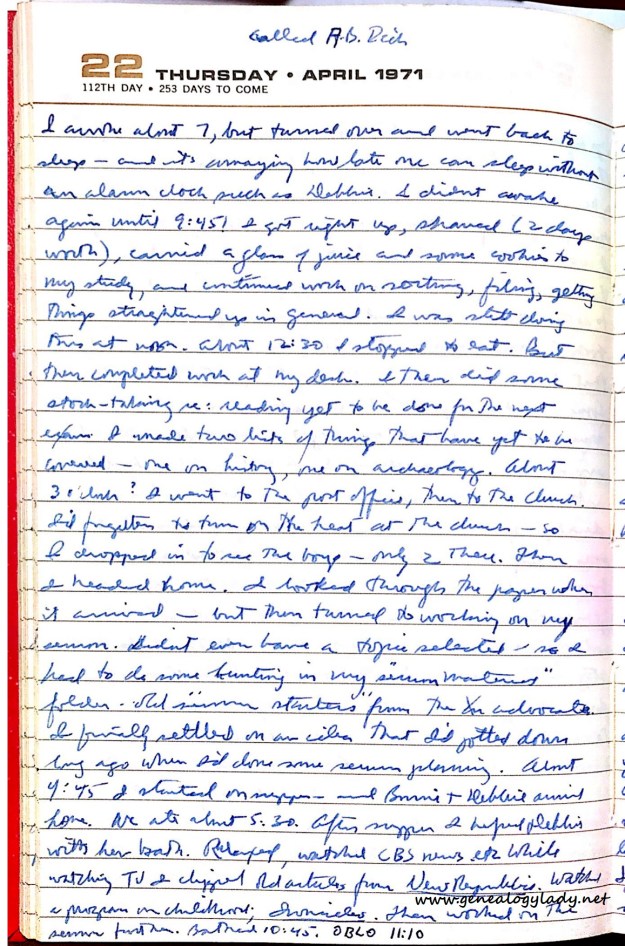 called A.B. Rich
22 THURSDAY • APRIL 1971
112TH DAY • 253 DAYS TO COME
I awoke about 7, but turned over and went back to
sleep – and it's amazing how late one can sleep without
an alarm clock such as Debbie. I didn't awake
again until 9:45! I got right up, shaved (2 days
worth), carried a glass of juice and some cookies to
my study, and continued work on sorting, filing, getting
things straightened up in general. I was still doing
this at noon. About 12:30 I stopped to eat. But
then completed work at my desk. I then did some
stock-taking re: reading yet to be done for the next
exam. I made two lists of things that have yet to be
covered – one on history, one on archaeology. About
3 o'clock? I went to the post office, then to the church.
I'd forgotten to turn on the heat at the church – so
I dropped in to see the boys – only 2 there. Then
I headed home. I looked through the paper when
it arrived – but then turned to working on my
sermon. Didn't even have a topic selected – so I
had to do some hunting in my "sermon materials"
folder - old "sermon starters" from the Xn advocate.
I finally settled on an idea that I'd jotted down
long ago when I'd done some sermon planning. About
4:45 I started on supper – and Bonnie + Debbie arrived
home. We ate about 5:30. After supper I helped Debbie
with her bath. Relaxed, watched CBS news etc. While
watching TV I clipped old articles from New Republic. Watched
a program on childhood, Then worked on the
sermon further. Bathed 10:45. OBLO 11:10
www.genealogylady.net